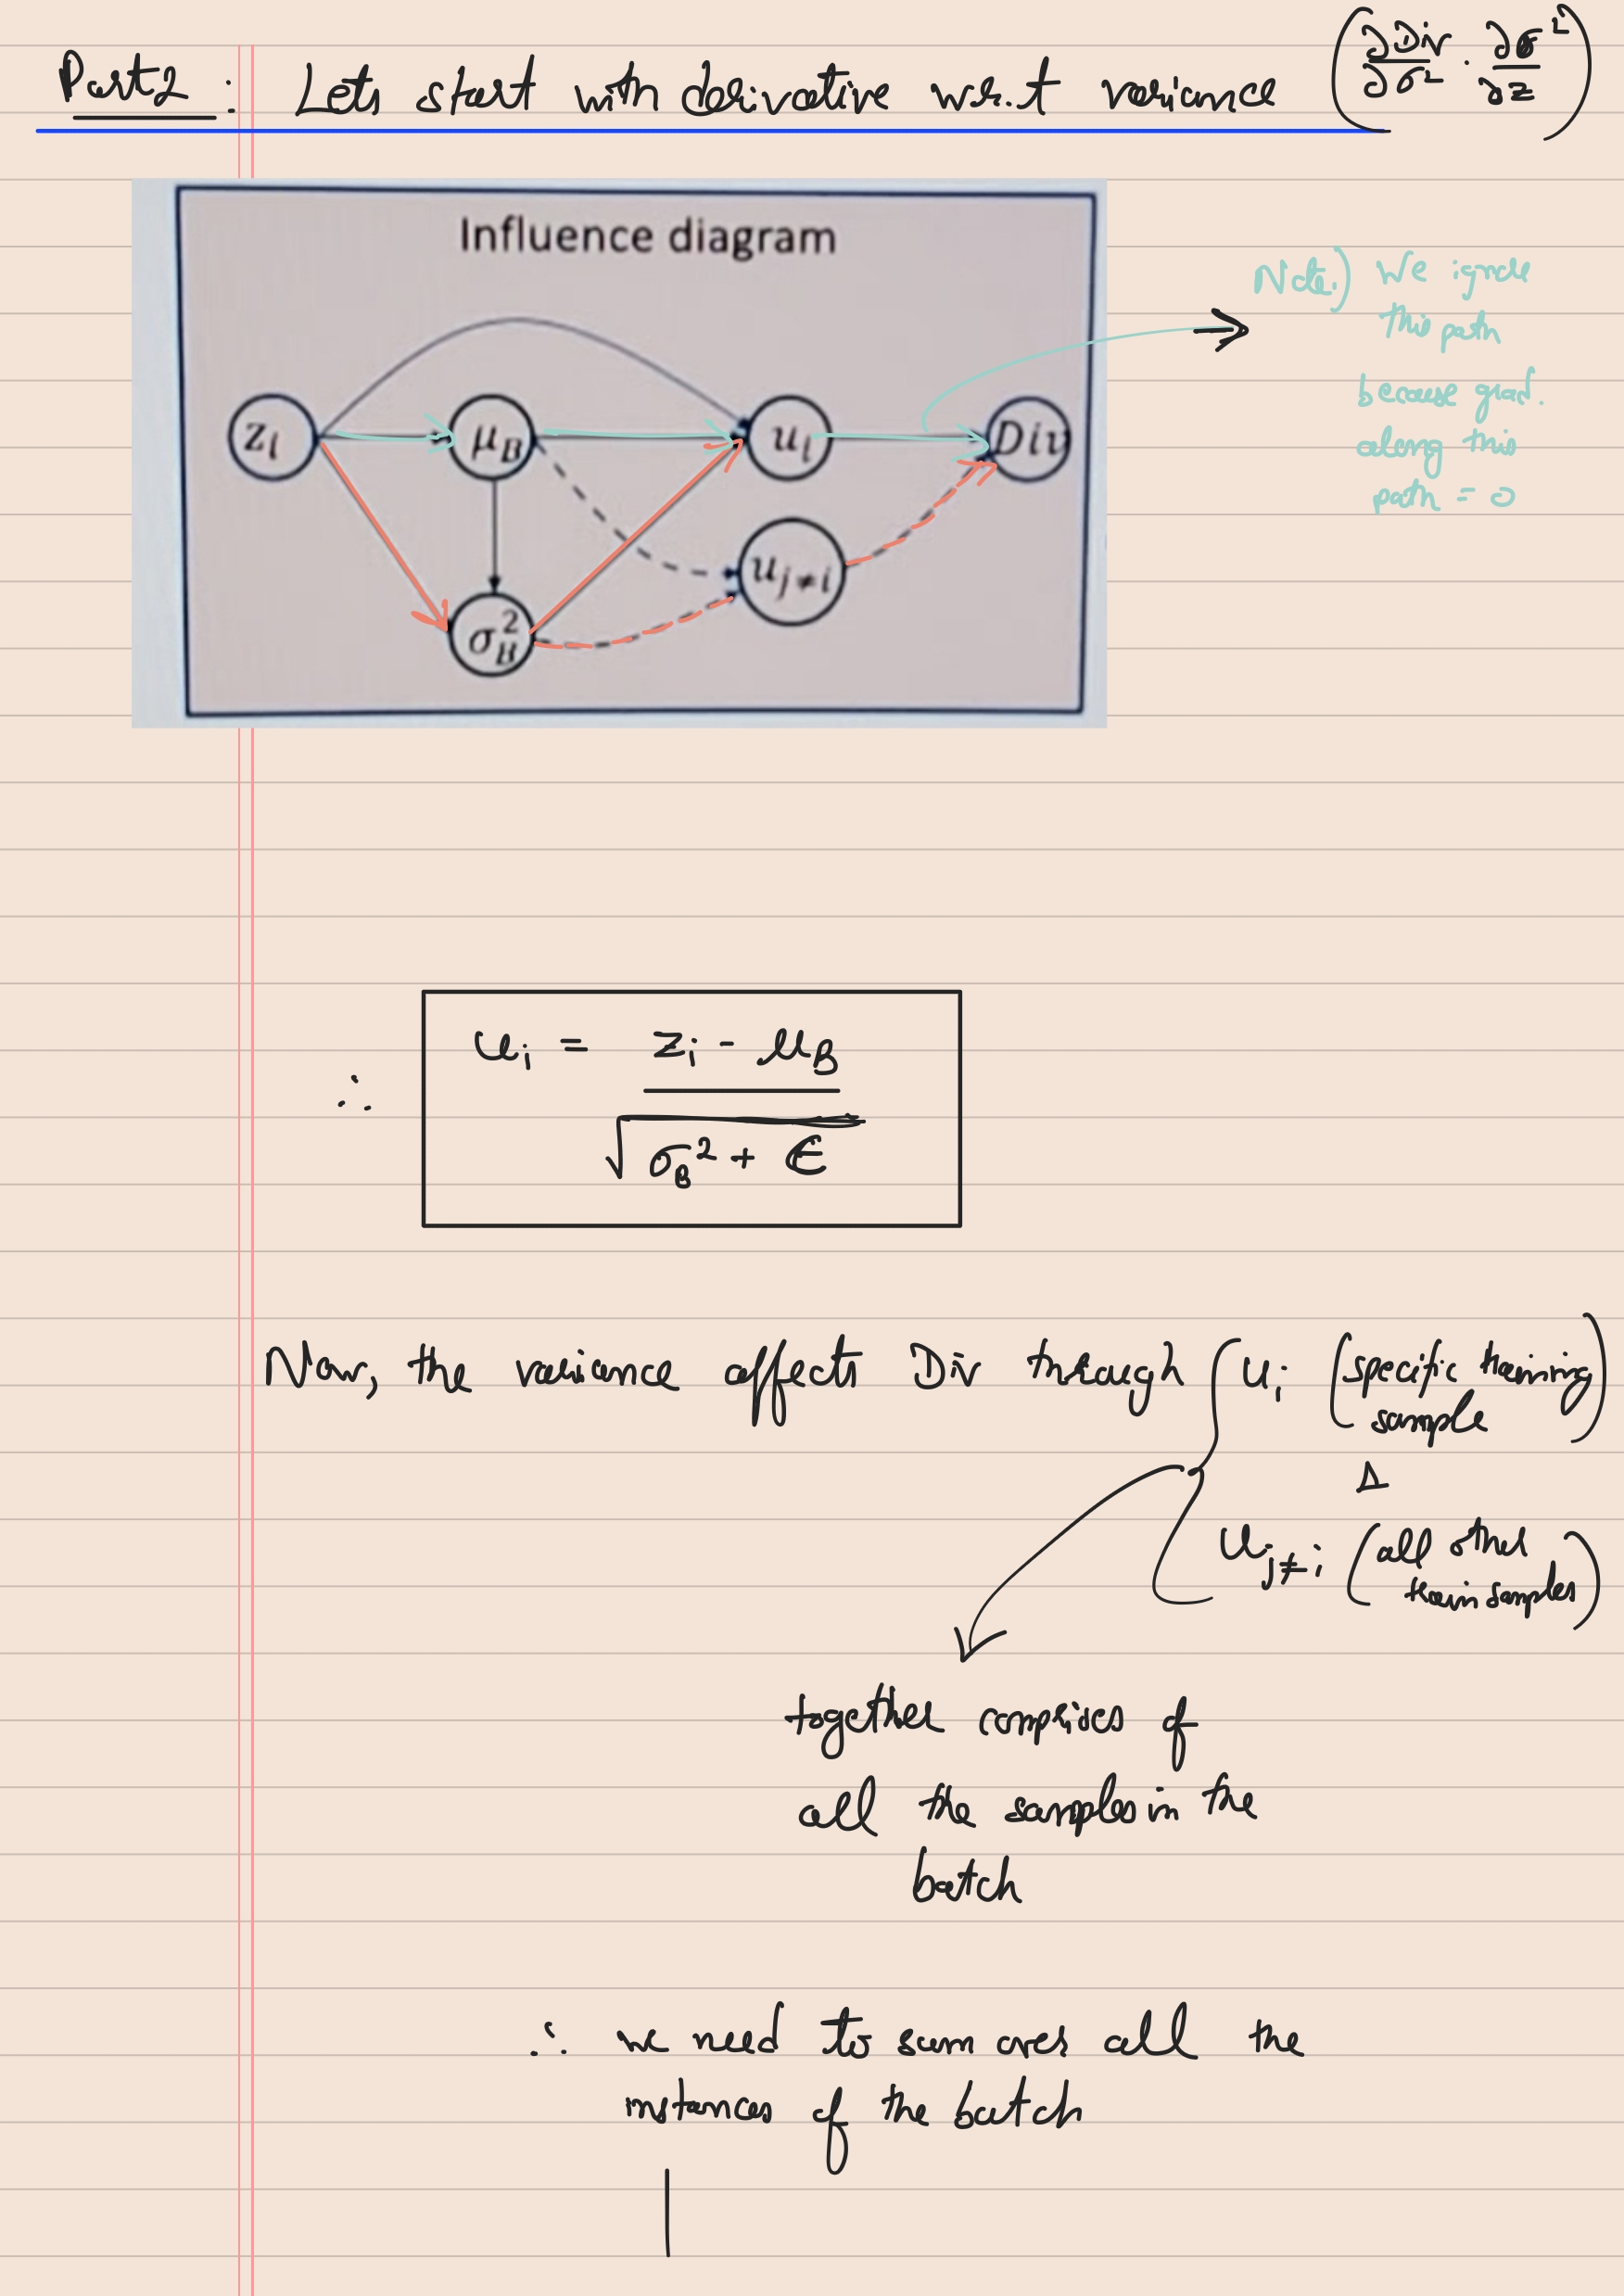 Part 2 : Lets start with derivative w.r.t variance (∂Div/∂σ² · ∂σ²/∂z)
Influence diagram
z_i μ_B u_i Div
u_{j≠i}
σ_B²
Note:) We ignore
this path
because grad.
along this
path = 0
∴ u_i = (z_i - μ_B) / √(σ_B² + ϵ)
Now, the variance affects Div through { u_i (specific training
sample)
&
u_{j≠i} (all other
train samples)
together comprises of
all the samples in the
batch
∴ we need to sum over all the
instances of the batch